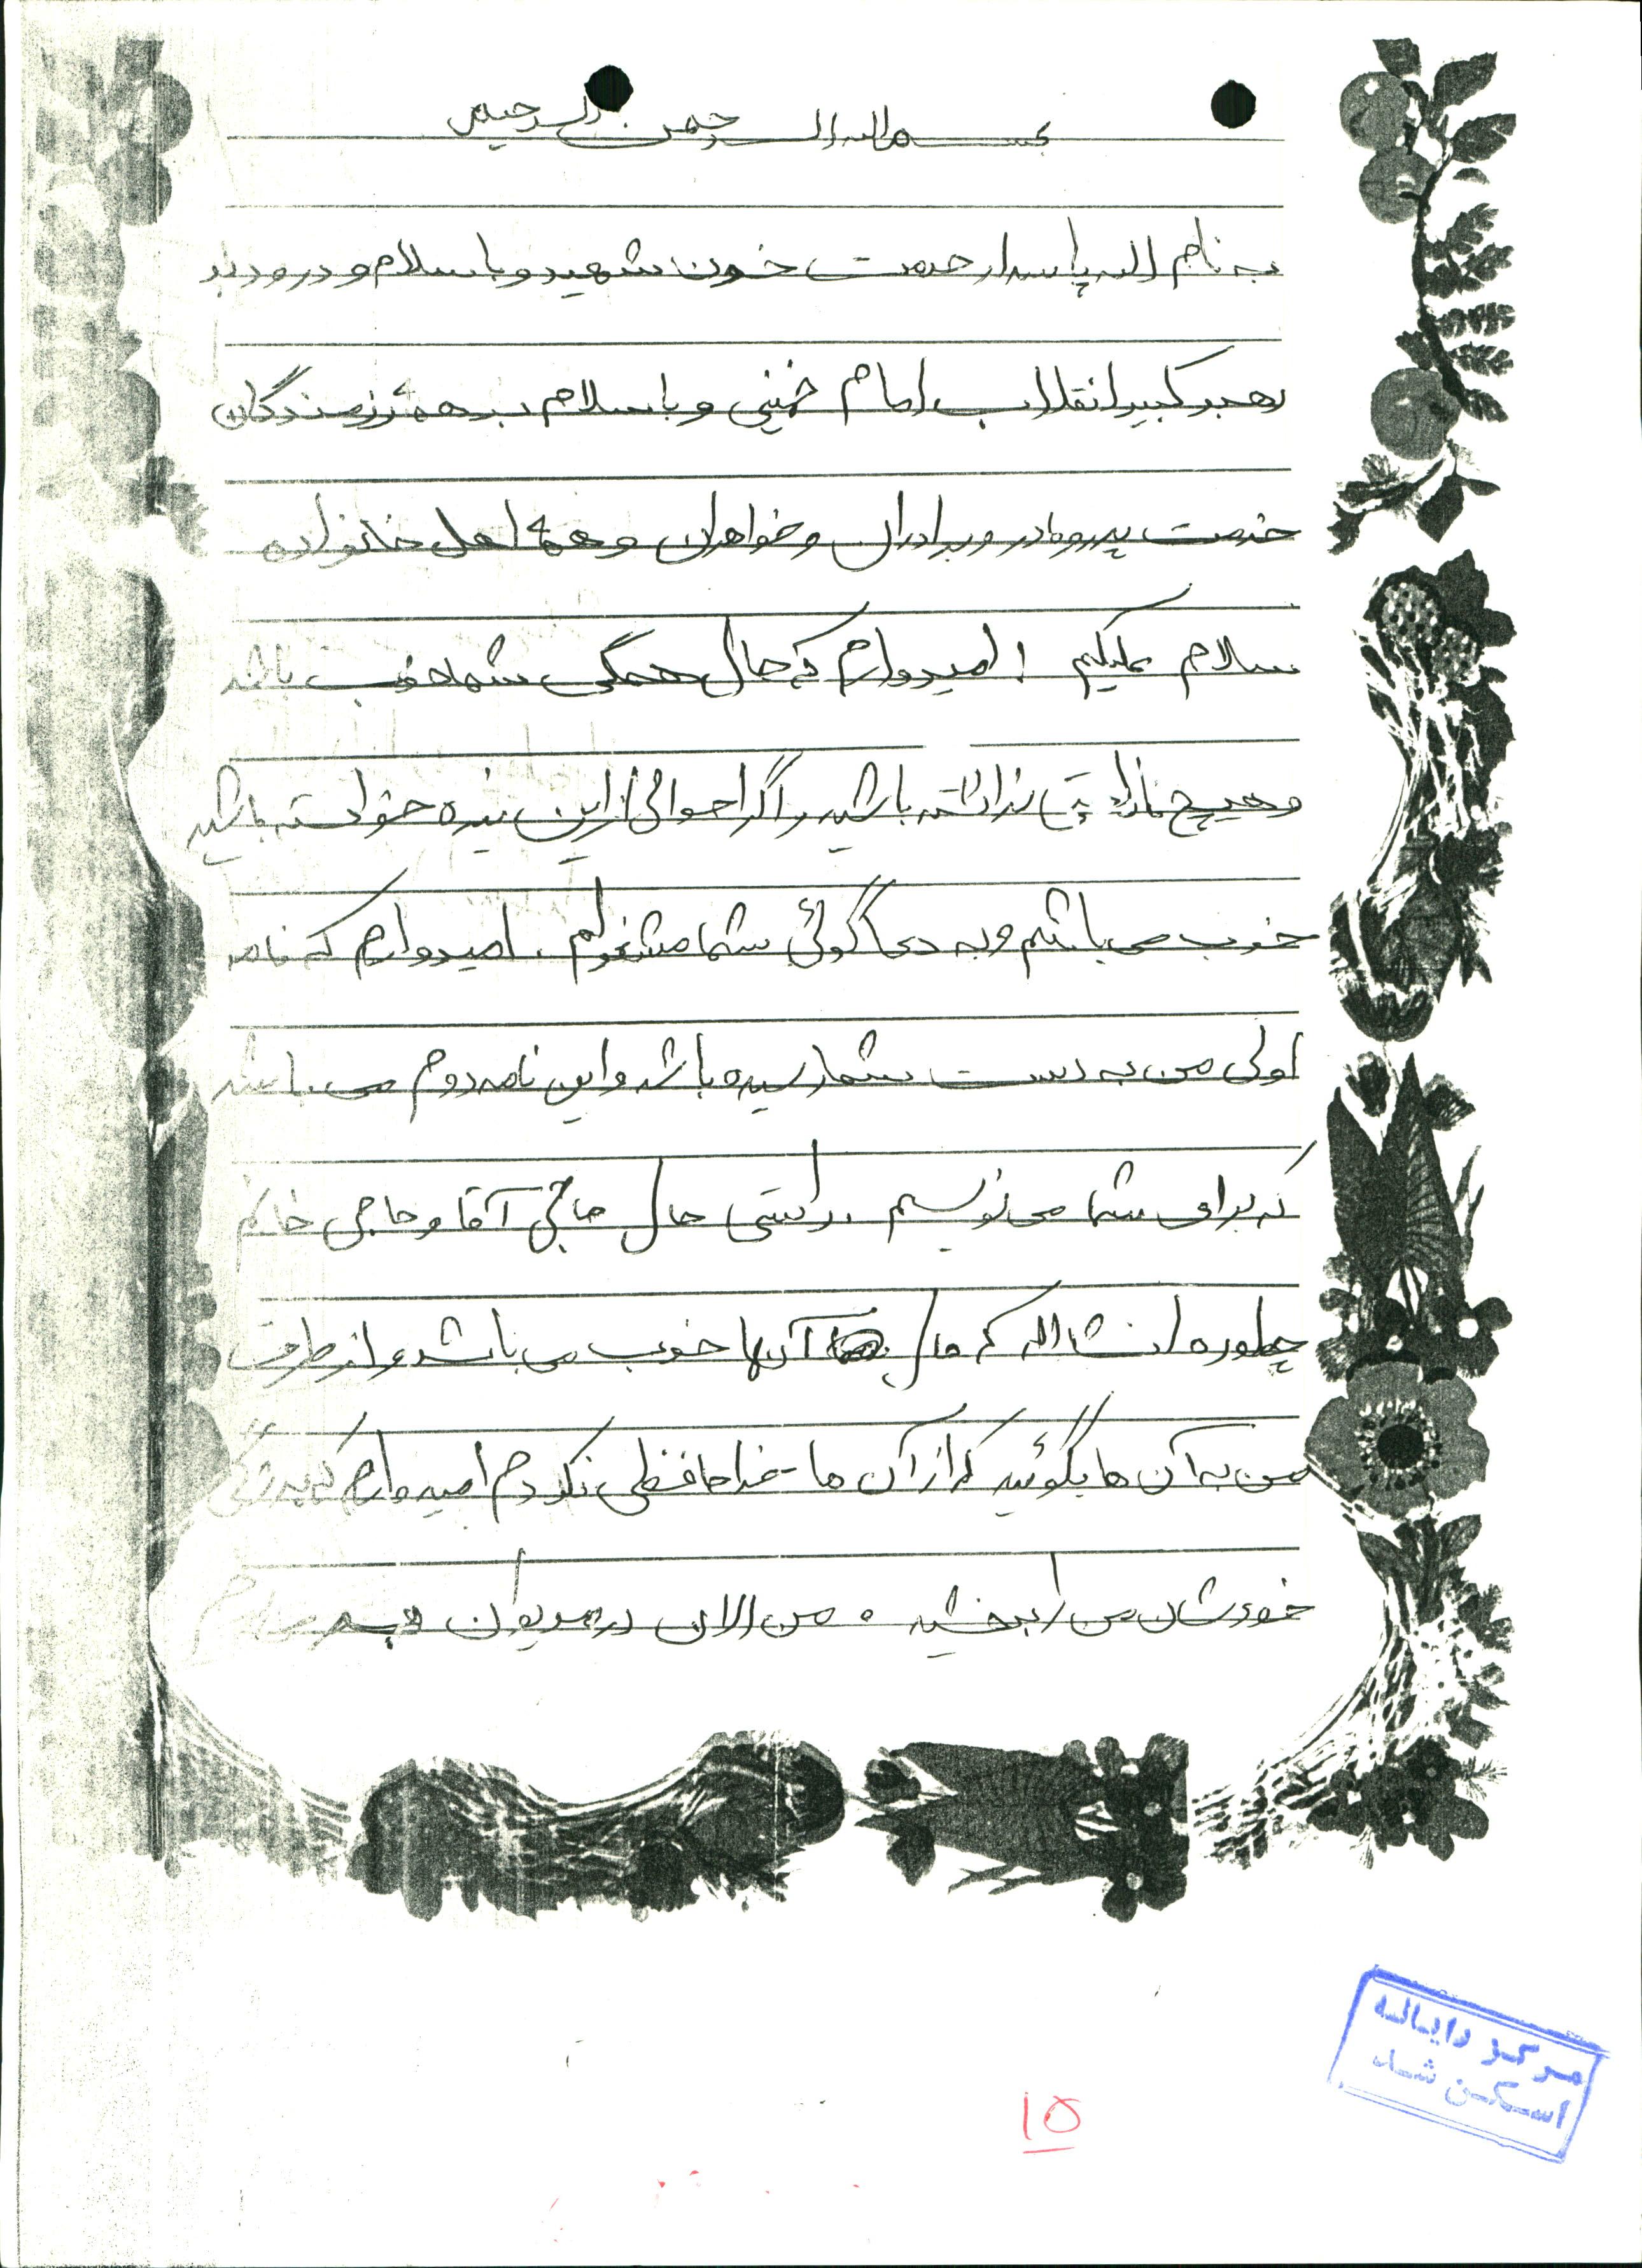 بسم الله الرحمن الرحیم
به نام الله پاسدار حرمت خون شهید و با سلام و درود بر
رهبر کبیر انقلاب امام خمینی و با سلام به همه رزمندگان
خدمت پدر و مادر و برادران و خواهران و همه اهل خانواده
سلام علیکم امیدوارم که حال همگی شما خوب باشد
و هیچ ناراحتی نداشته باشید و اگر احوالی از این بنده خواسته باشید
خوب می باشم و به دعا گوئی شما مشغولم . امیدوارم که نامه
اولی من به دست شما رسیده باشد و این نامه دوم می باشد
که برای شما می نویسم . راستی حال حاجی آقا و حاجی خانم
چطوره انشاالله که حال آن ها خوب می باشد و از طرف
من به آن ها بگوئید که از آن ها خداحافظی نکردم امیدوارم که به بزرگی
خودشان من را ببخشید . من الان در مریوان
مرکز رایانه
اسکن شد
۱۵